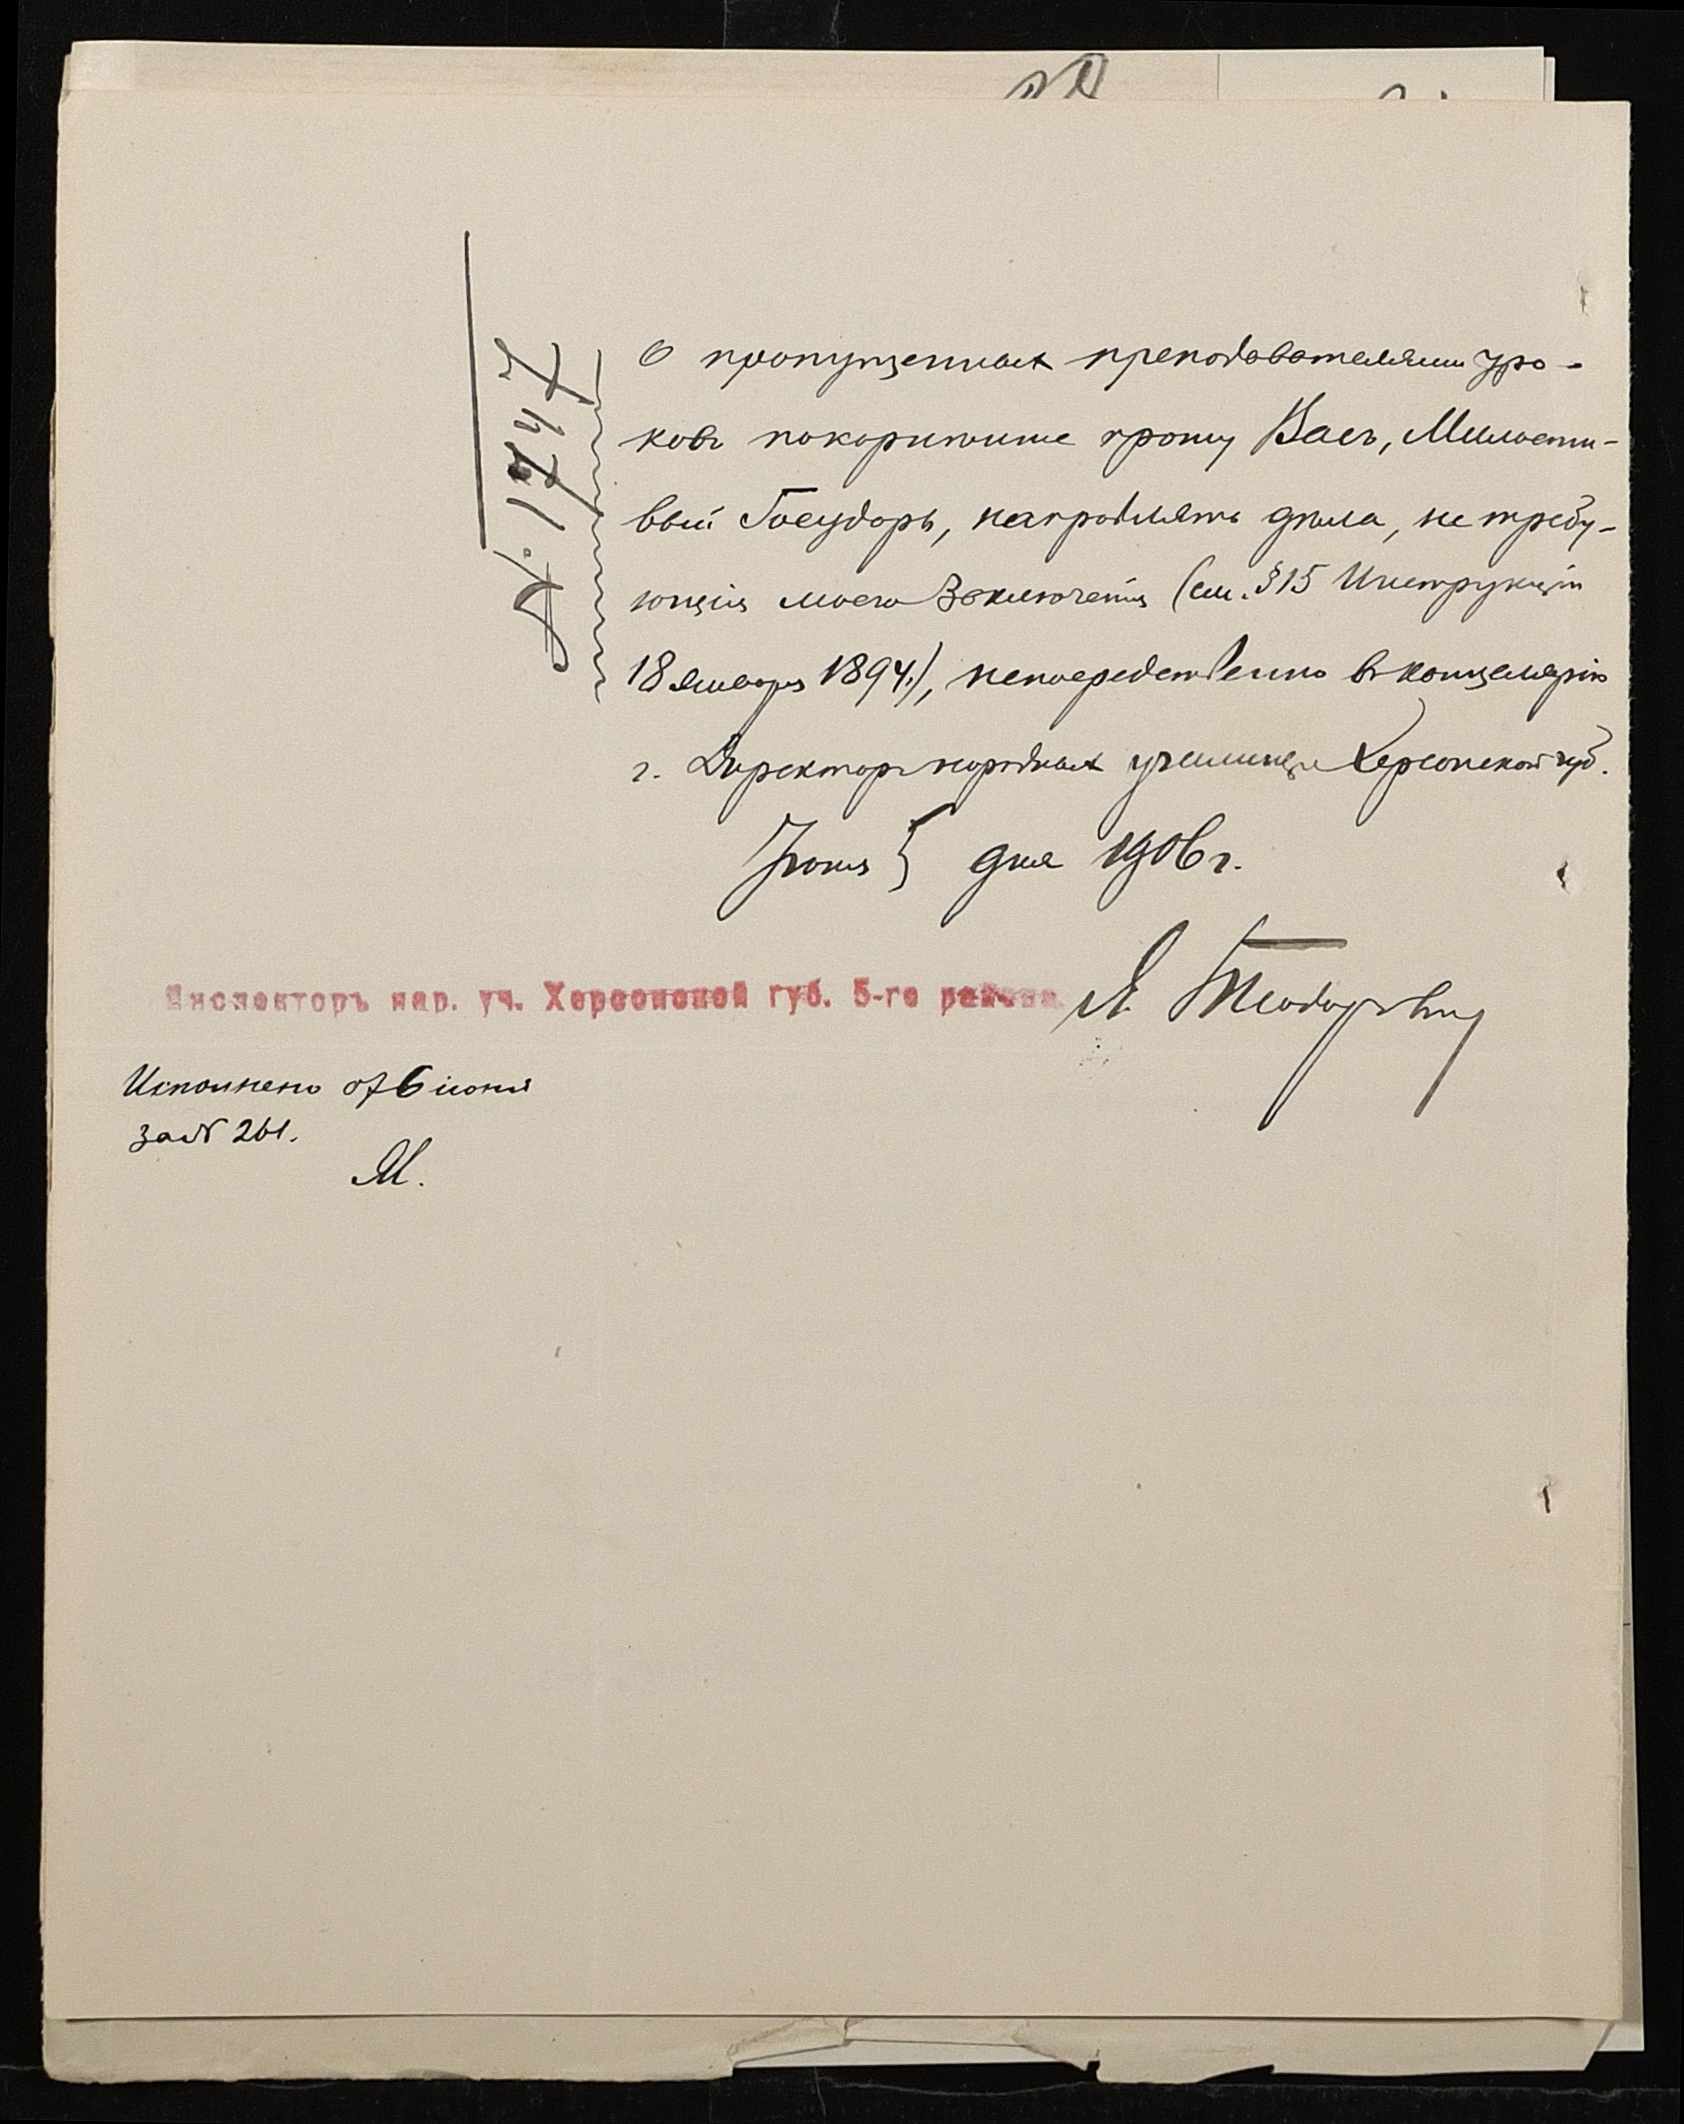 № 1747
О пропущенныхъ преподавателями уро-
ковъ покорнѣйше прошу Васъ, Милости-
вый Государь, направлять дѣла, не требу-
ющія моего заключенія (см. §15 Инструкціи
18 января 1894.), непосредственно въ канцелярію
г. Директора народныхъ училищъ Херсонской губ.
Іюня 5 дня 1906 г.
Инспекторъ нар. уч. Херсонской губ. 5-го района
Исполнено от 6 іюня
за № 261.
М.